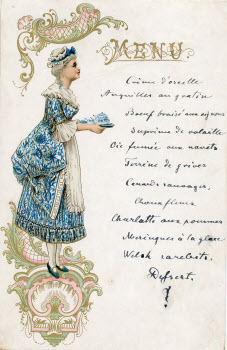 MENU
Crème d'oseille
Anguilles au gratin
Boeuf braisé aux oignons
Suprème de volaille
Oie fumée aux navets
Terrine de grives
Canards sauvages.
Choux fleurs
Charlotte aux pommes
Meringues à la glace
Welsh rarebits.
Dessert.